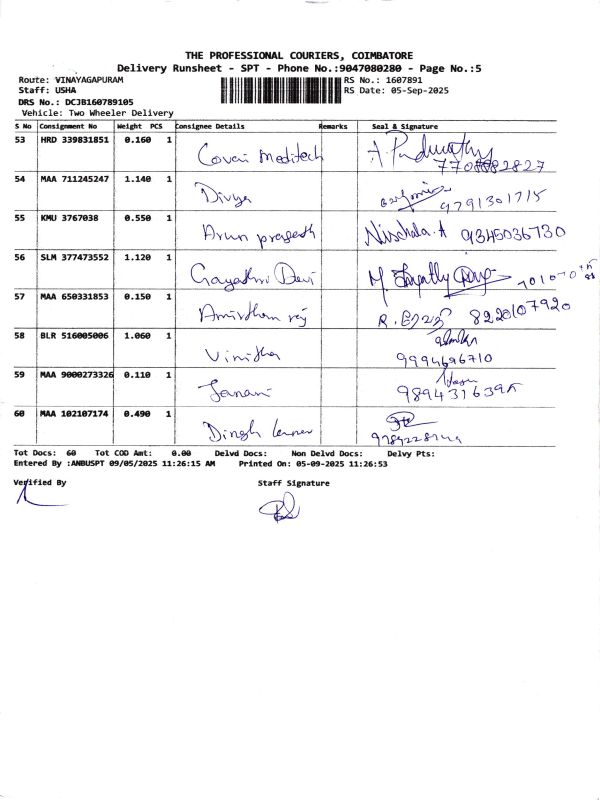 THE PROFESSIONAL COURIERS, COIMBATORE
Delivery Runsheet - SPT - Phone No.:9047080280 - Page No.:5
Route: VINAYAGAPURAM RS No.: 1607891
Staff: USHA RS Date: 05-Sep-2025
DRS No.: DCJB160789105
Vehicle: Two Wheeler Delivery
S No Consignment No Weight PCS Consignee Details Remarks Seal & Signature
53 HRD 339831851 0.160 1 Covai Meditech
54 MAA 711245247 1.140 1 Divya 9791301715
55 KMU 3767038 0.550 1 Arun prageeth Nirschala.A 9345036730
56 SLM 377473552 1.120 1 Gayathri Devi
57 MAA 650331853 0.150 1 Amirtham raj R. ரேவதி 8220107920
58 BLR 516005006 1.060 1 Vinitha 9994696710
59 MAA 9000273326 0.110 1 Janani
60 MAA 102107174 0.490 1
Tot Docs: 60 Tot COD Amt: 0.00 Delvd Docs: Non Delvd Docs: Delvy Pts:
Entered By :ANBUSPT 09/05/2025 11:26:15 AM Printed On: 05-09-2025 11:26:53
Verified By Staff Signature